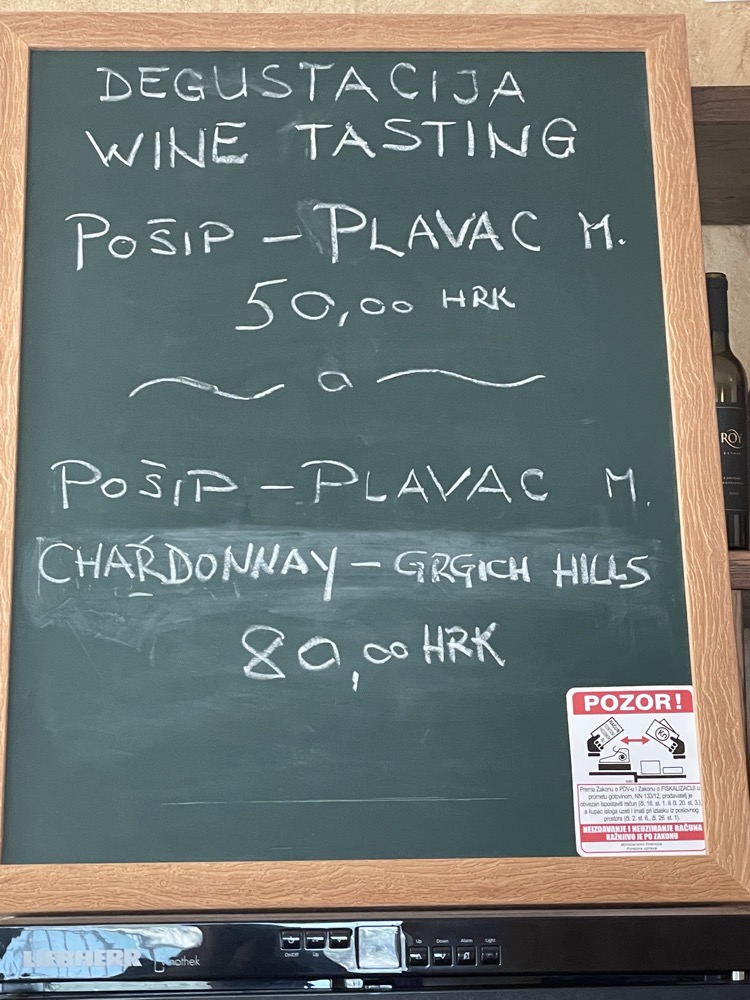 DEGUSTACIJA
WINE TASTING
POŠIP – PLAVAC M.
50,00 HRK
POŠIP – PLAVAC M.
CHARDONNAY – GRGICH HILLS
80,00 HRK
POZOR!
Prema Zakonu o PDV-u i Zakonu o FISKALIZACIJI u
prometu gotovinom, NN 133/12, prodavatelj je
obvezan ispostaviti račun (čl. 16. st. 1. ili čl. 20. st. 3.),
a kupac istoga uzeti i imati pri izlasku iz poslovnog
prostora (čl. 2. st. 6., čl. 26. st. 1).
NEIZDAVANJE I NEUZIMANJE RAČUNA
KAŽNJIVO JE PO ZAKONU
Ministarstvo financija
Porezna uprava
ROY
LIEBHERR
On/Off Up Up Down Alarm Light